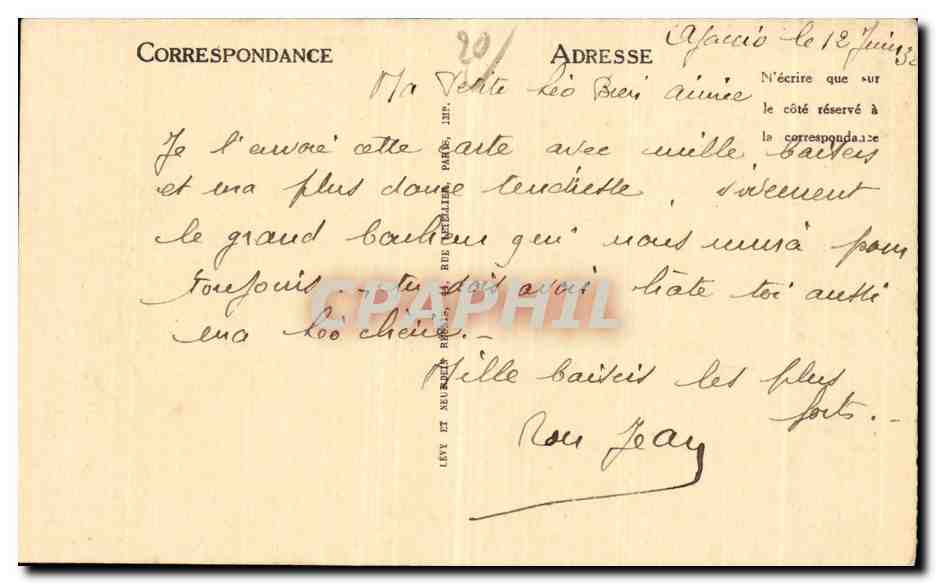 CORRESPONDANCE
20/
ADRESSE
Ajaccio le 12 Juin
N'écrire que sur
le côté réservé à
la correspondance
Ma Petite Léo Bien aimée
Je t'envoie cette carte avec mille baisers
et ma plus douce tendresse, vivement
le grand bonheur qui nous unira pour
toujours. tu dois avoir hâte toi aussi
ma Léo chérie.-
Mille baisers les plus
forts.-
Ton Jean
LÉVY ET NEURDEIN RÉUNIS, 44, RUE LETELLIER, PARIS, IMP.
CPAPHIL